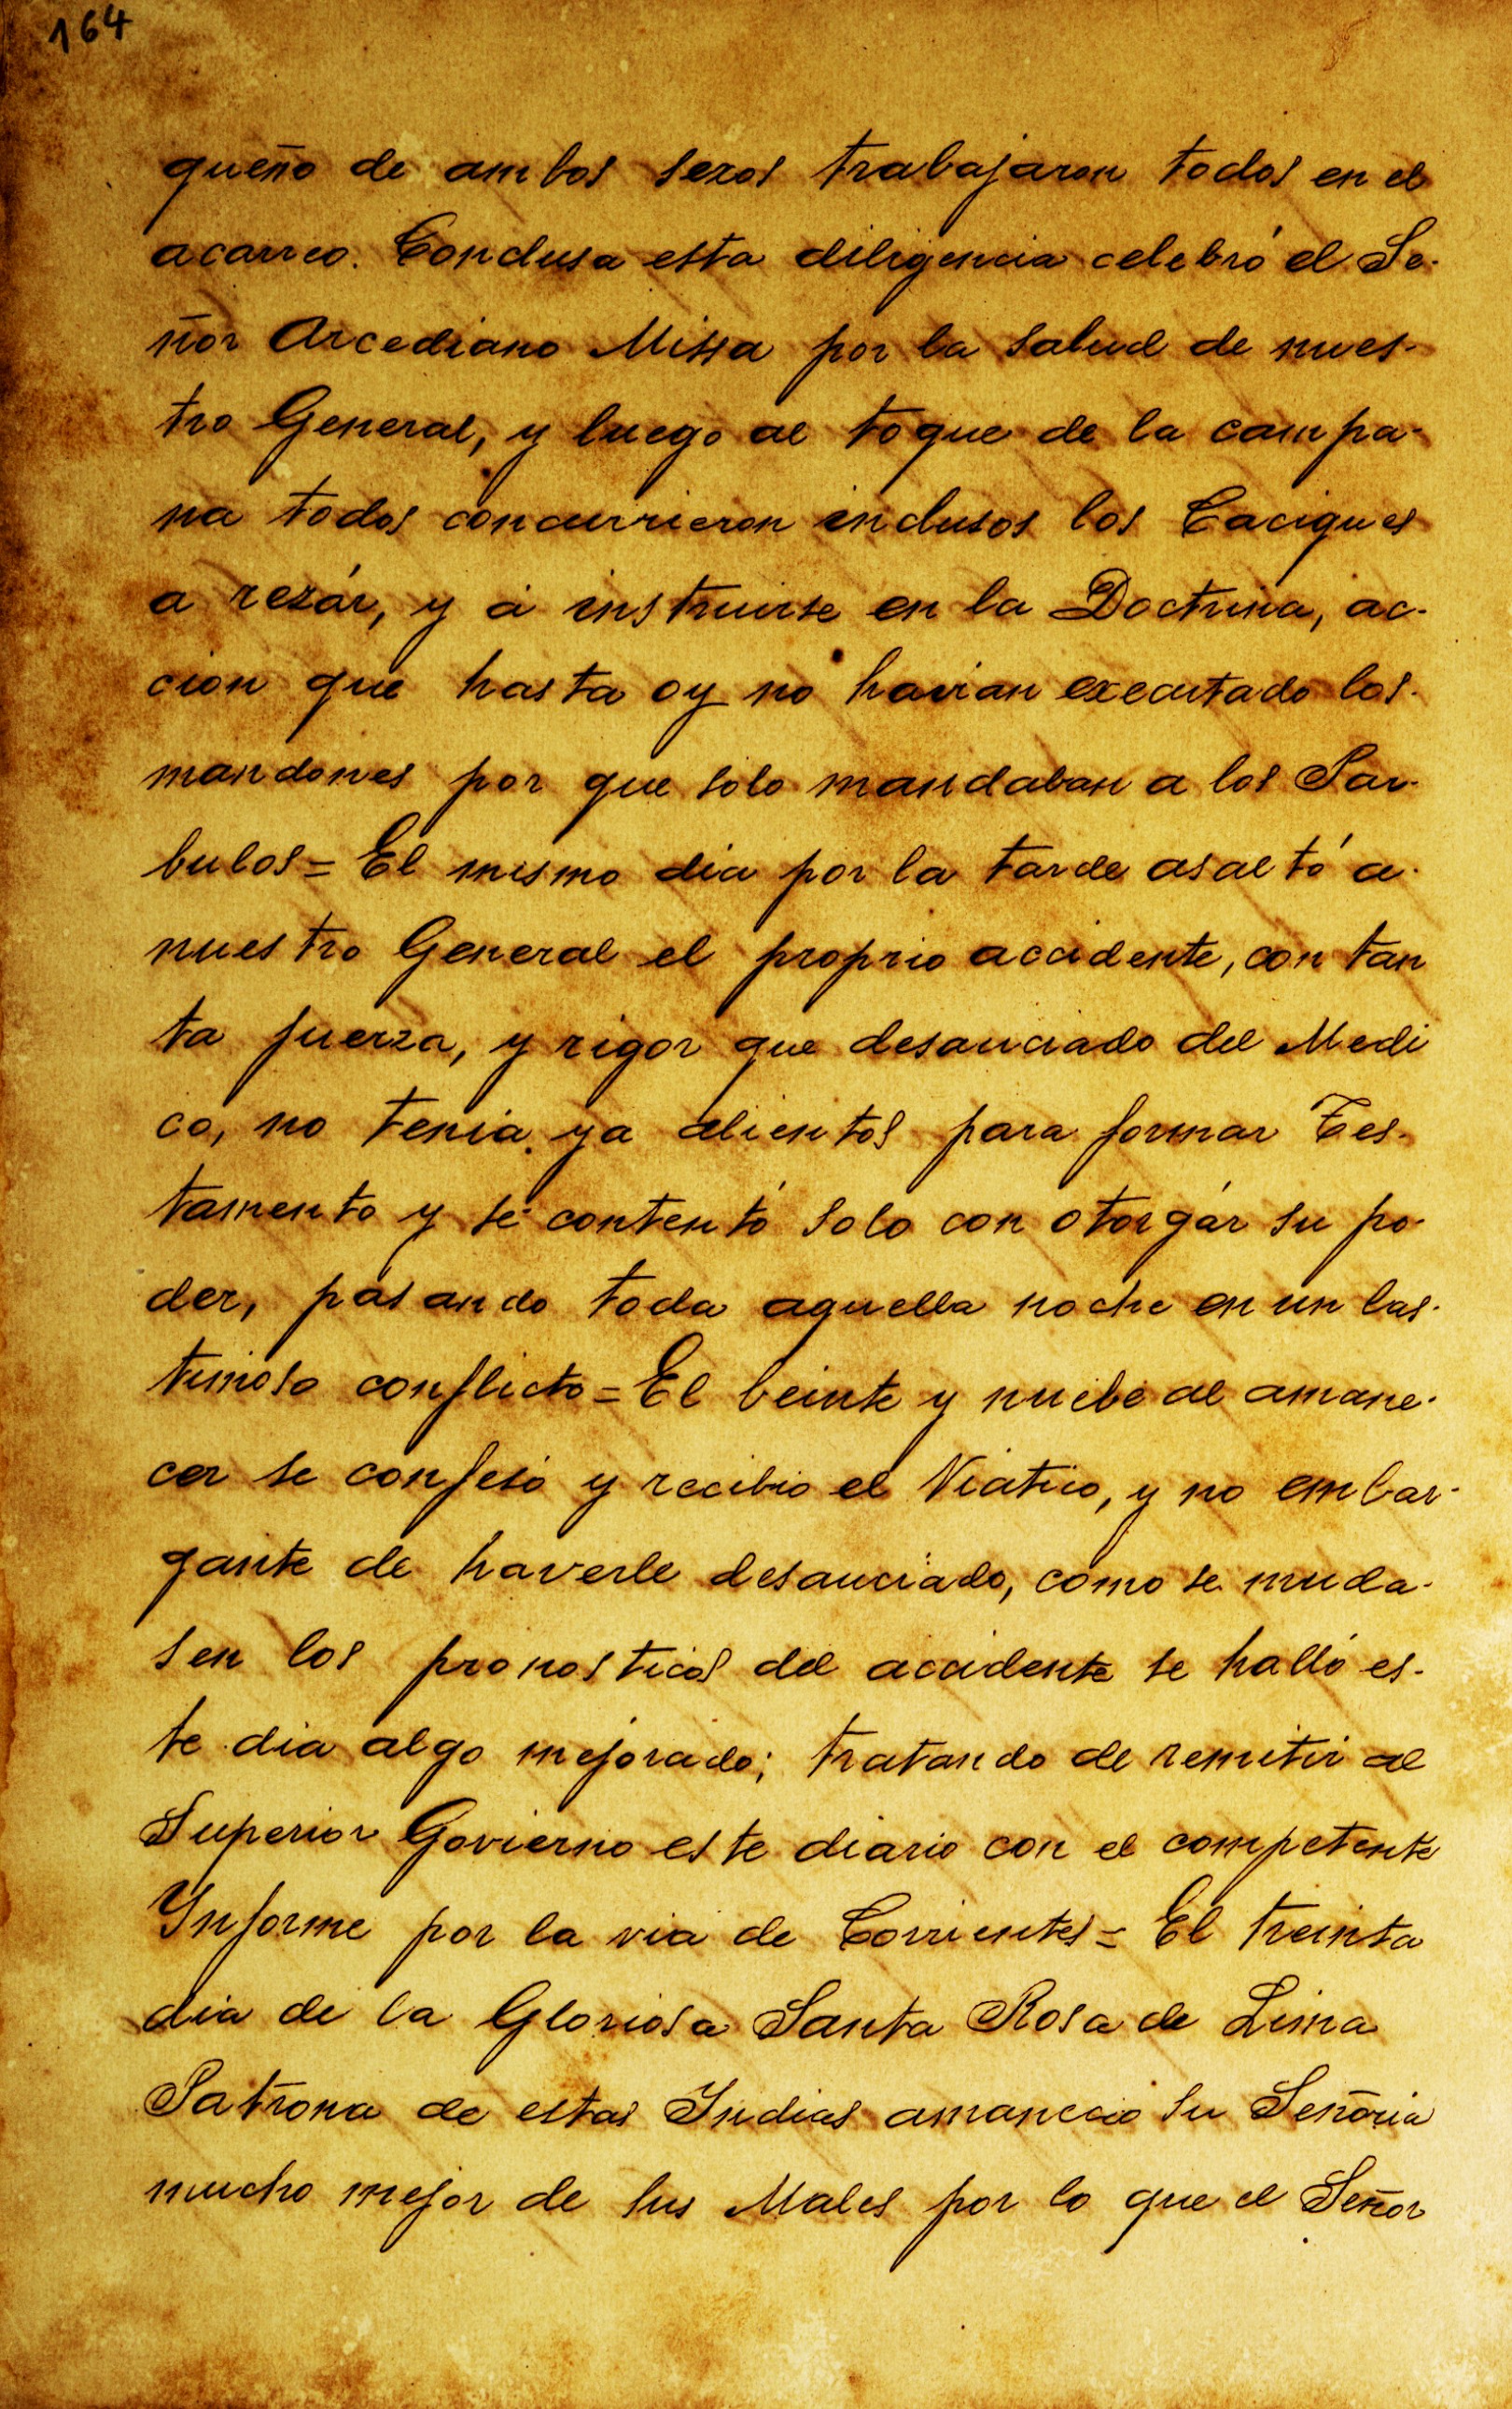 164
queño de ambos sexos trabajaron todos en el
acarreo. Conclusa esta diligencia celebró el Se-
ñor Arcediano Missa por la salud de nues-
tro General, y luego al toque de la campa-
na todos concurrieron inclusos los Caciques
a rezár, y á instruirse en la Doctrina, ac-
cion que hasta oy no havian executado los
mandones por que solo mandaban a los Par-
bulos = El mismo dia por la tarde asaltó a
nuestro General el proprio accidente, con tan
ta fuerza, y rigor que desauciado del Medi
co, no tenia ya alientos para formar Tes-
tamento y se contentó solo con otorgár su po-
der, pasando toda aquella noche en un las-
timoso conflicto = El beinte y nuebe al amane-
cer se confesó y recibio el Viatico, y no embar-
gante de haverle desauciado, como se muda-
sen los pronosticos del accidente se halló es-
te dia algo mejorado; tratando de remitir al
Superior Govierno este diario con el competente
Ynforme por la via de Corrientes = El treinta
dia de la Gloriosa Santa Rosa de Lima
Patrona de estas Yndias amanecio su Señoria
mucho mejor de sus Males por lo que el Señor